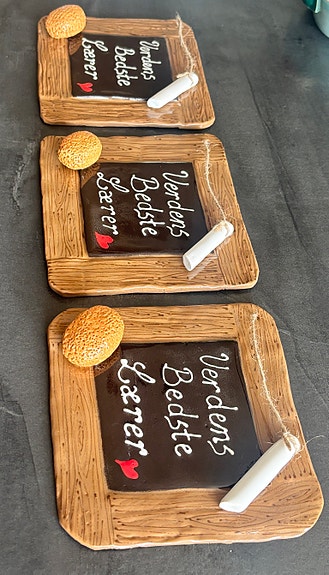 Verdens
Bedste
Lærer
Verdens
Bedste
Lærer
Verdens
Bedste
Lærer